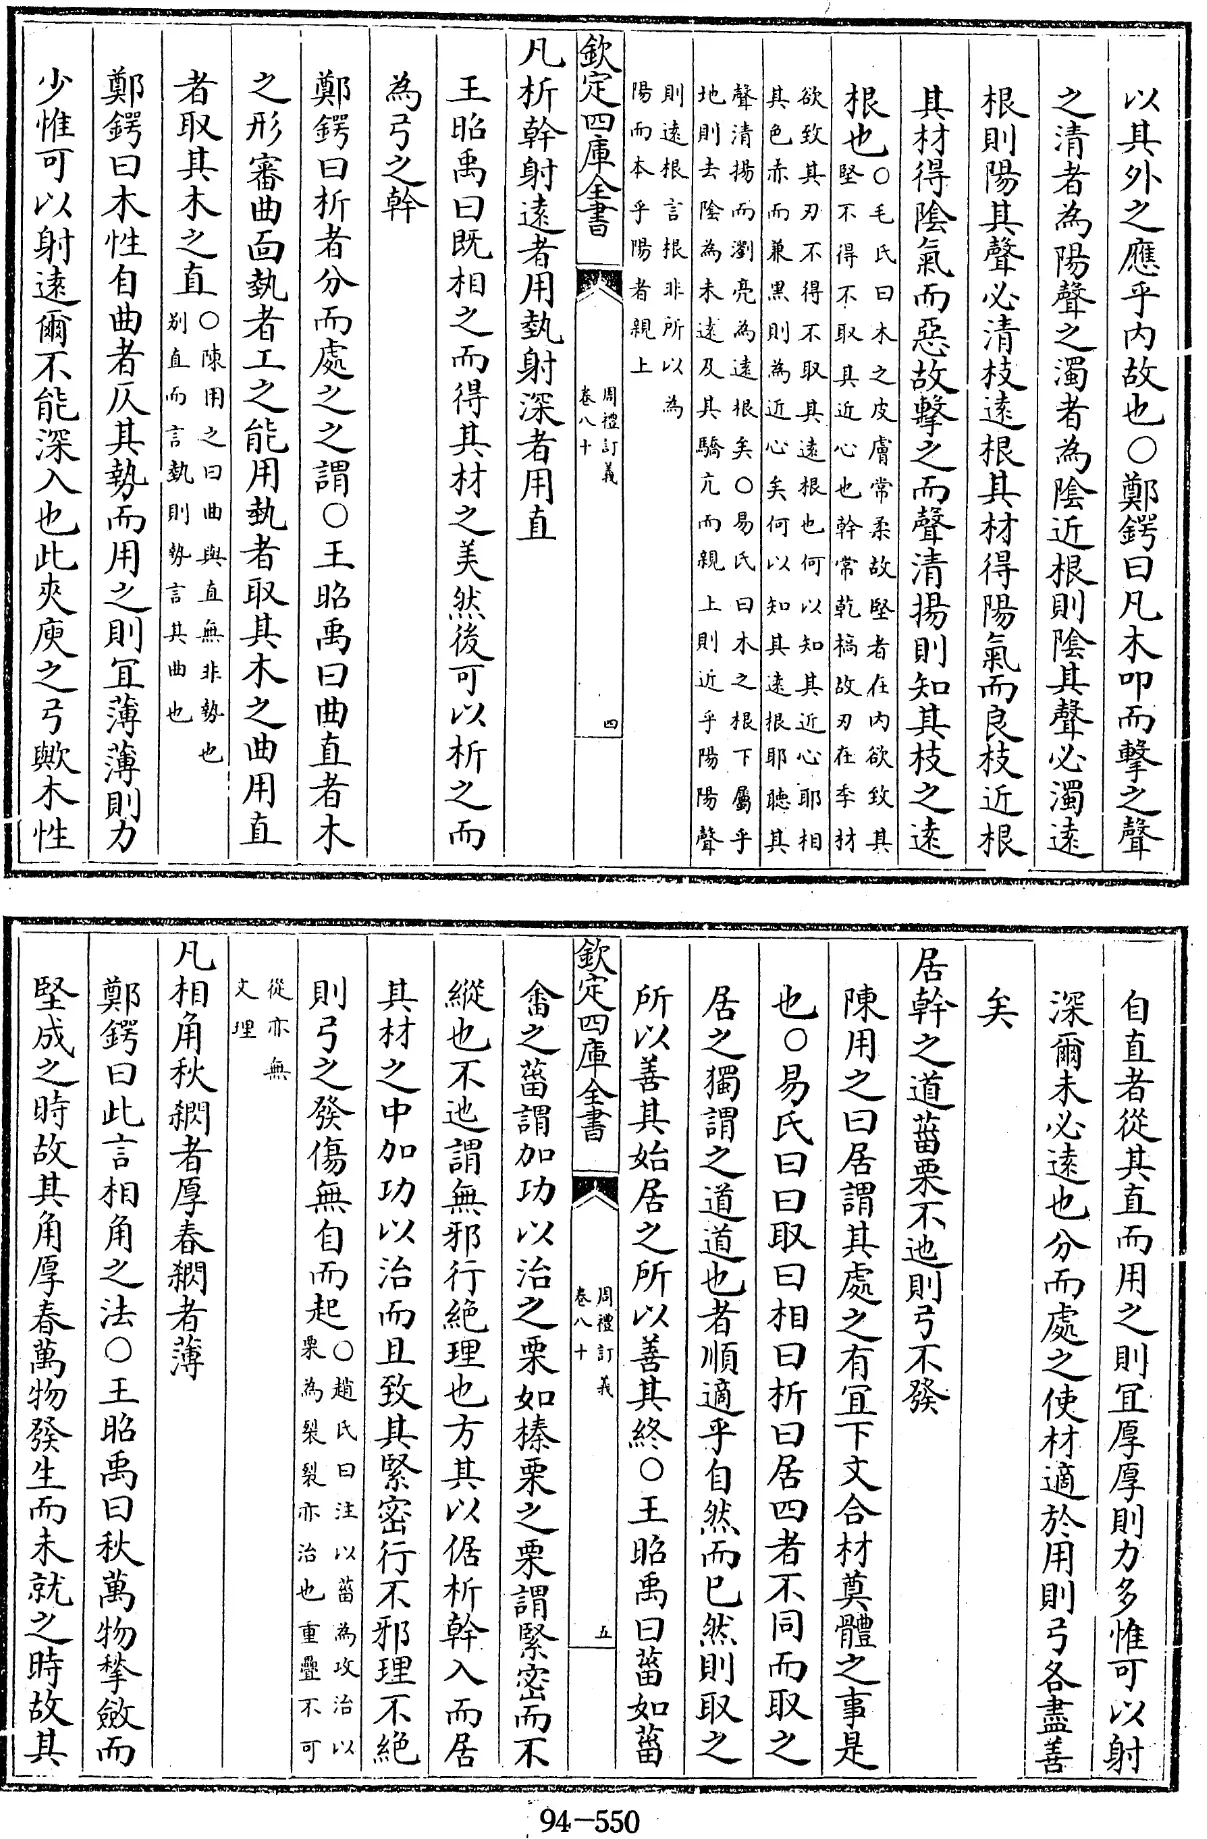 以其外之應乎内故也○鄭鍔曰凡木叩而擊之聲
之清者為陽聲之濁者為隂近根則隂其聲必濁逺
根則陽其聲必清枝逺根其材得陽氣而良枝近根
其材得隂氣而惡故擊之而聲清揚則知其枝之逺
根也○毛氏曰木之皮膚常柔故堅者在内欲致其
堅不得不取其近心也幹常乾槁故刃在季材
欲致其刃不得不取其逺根也何以知其近心耶相
其色赤而兼黒則為近心矣何以知其逺根耶聽其
聲清揚而瀏亮為逺根矣○易氏曰木之根下屬乎
地則去隂為未逺及其驕亢而親上則近乎陽陽聲
則逺根言根非所以為
陽而本乎陽者親上
欽定四庫全書
周禮訂義
卷八十
四
凡析幹射逺者用埶射深者用直
王昭禹曰既相之而得其材之美然後可以析之而
為弓之幹
鄭鍔曰析者分而處之之謂○王昭禹曰曲直者木
之形審曲面埶者工之能用埶者取其木之曲用直
者取其木之直○陳用之曰曲與直無非勢也
别直而言埶則勢言其曲也
鄭鍔曰木性自曲者仄其勢而用之則宜薄薄則力
少惟可以射逺爾不能深入也此夾庾之弓歟木性
自直者從其直而用之則宜厚厚則力多惟可以射
深爾未必逺也分而處之使材適於用則弓各盡善
矣
居幹之道菑栗不迆則弓不發
陳用之曰居謂其處之有宜下文合材奠體之事是
也○易氏曰曰取曰相曰析曰居四者不同而取之
居之獨謂之道道也者順適乎自然而已然則取之
所以善其始居之所以善其終○王昭禹曰菑如菑
欽定四庫全書
周禮訂義
卷八十
五
畬之菑謂加功以治之栗如榛栗之栗謂緊密而不
縱也不迆謂無邪行絶理也方其以倨析幹入而居
其材之中加功以治而且致其緊密行不邪理不絶
則弓之發傷無自而起○趙氏曰注以菑為攻治以
栗為裂裂亦治也重疊不可
從亦無
文理
凡相角秋閷者厚春閷者薄
鄭鍔曰此言相角之法○王昭禹曰秋萬物揫斂而
堅成之時故其角厚春萬物發生而未就之時故其
94-550